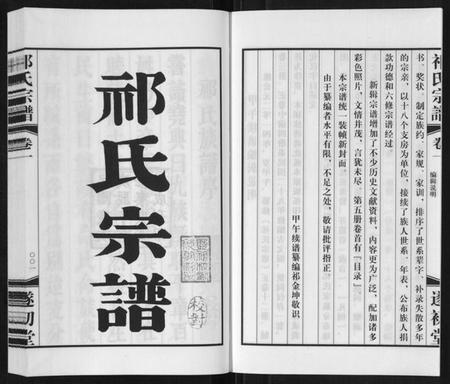 祁氏宗譜
卷一
編輯説明
遂初堂
书、奖状、制定族约、家规、家训，排序了世系辈字，补录失散多年
的宗亲，以十八个支房为单位，接续了族人世系、年表，公布族人捐
款功德和六修宗谱经过。
新辑宗谱增加了不少历史文献资料，内容更为广泛，配加诸多
彩色照片，文情并茂，言犹未尽。第五册卷首有『目录』。
本宗谱统一装帧新封面。
由于纂编者水平有限，不足之处，敬请批评指正。
甲午续谱纂编祁金坤敬识
祁氏宗譜
校對
祁氏宗譜
卷一
〇〇一
遂初堂